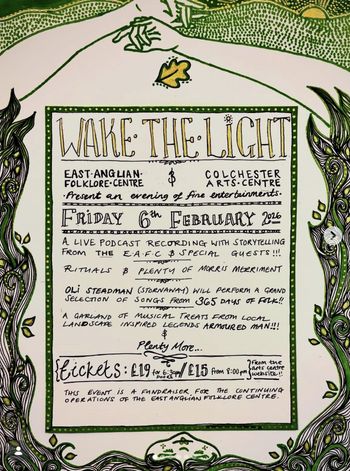 WAKE·THE·LIGHT
EAST·ANGLIAN· & COLCHESTER
FOLKLORE·CENTRE ARTS·CENTRE
·Present an evening of fine entertainments·
FRIDAY 6th FEBRUARY 2026
A LIVE PODCAST RECORDING WITH STORYTELLING
FROM THE E.A.F.C & SPECIAL GUESTS!!!
RITUALS & PLENTY OF MORRIS MERRIMENT
OLI STEADMAN (STORNAWAY) WILL PERFORM A GRAND
SELECTION OF SONGS FROM 365 DAYS OF FOLK!!
A GARLAND OF MUSICAL TREATS FROM LOCAL
LANDSCAPE INSPIRED LEGENDS ARMOURED MAN!!!
&
Plenty More...
tickets: £19 for 6:30pm / £15 from 8:00pm {from the
arts centre
website!!
THIS EVENT IS A FUNDRAISER FOR THE CONTINUING
OPERATIONS OF THE EAST ANGLIAN FOLKLORE CENTRE.